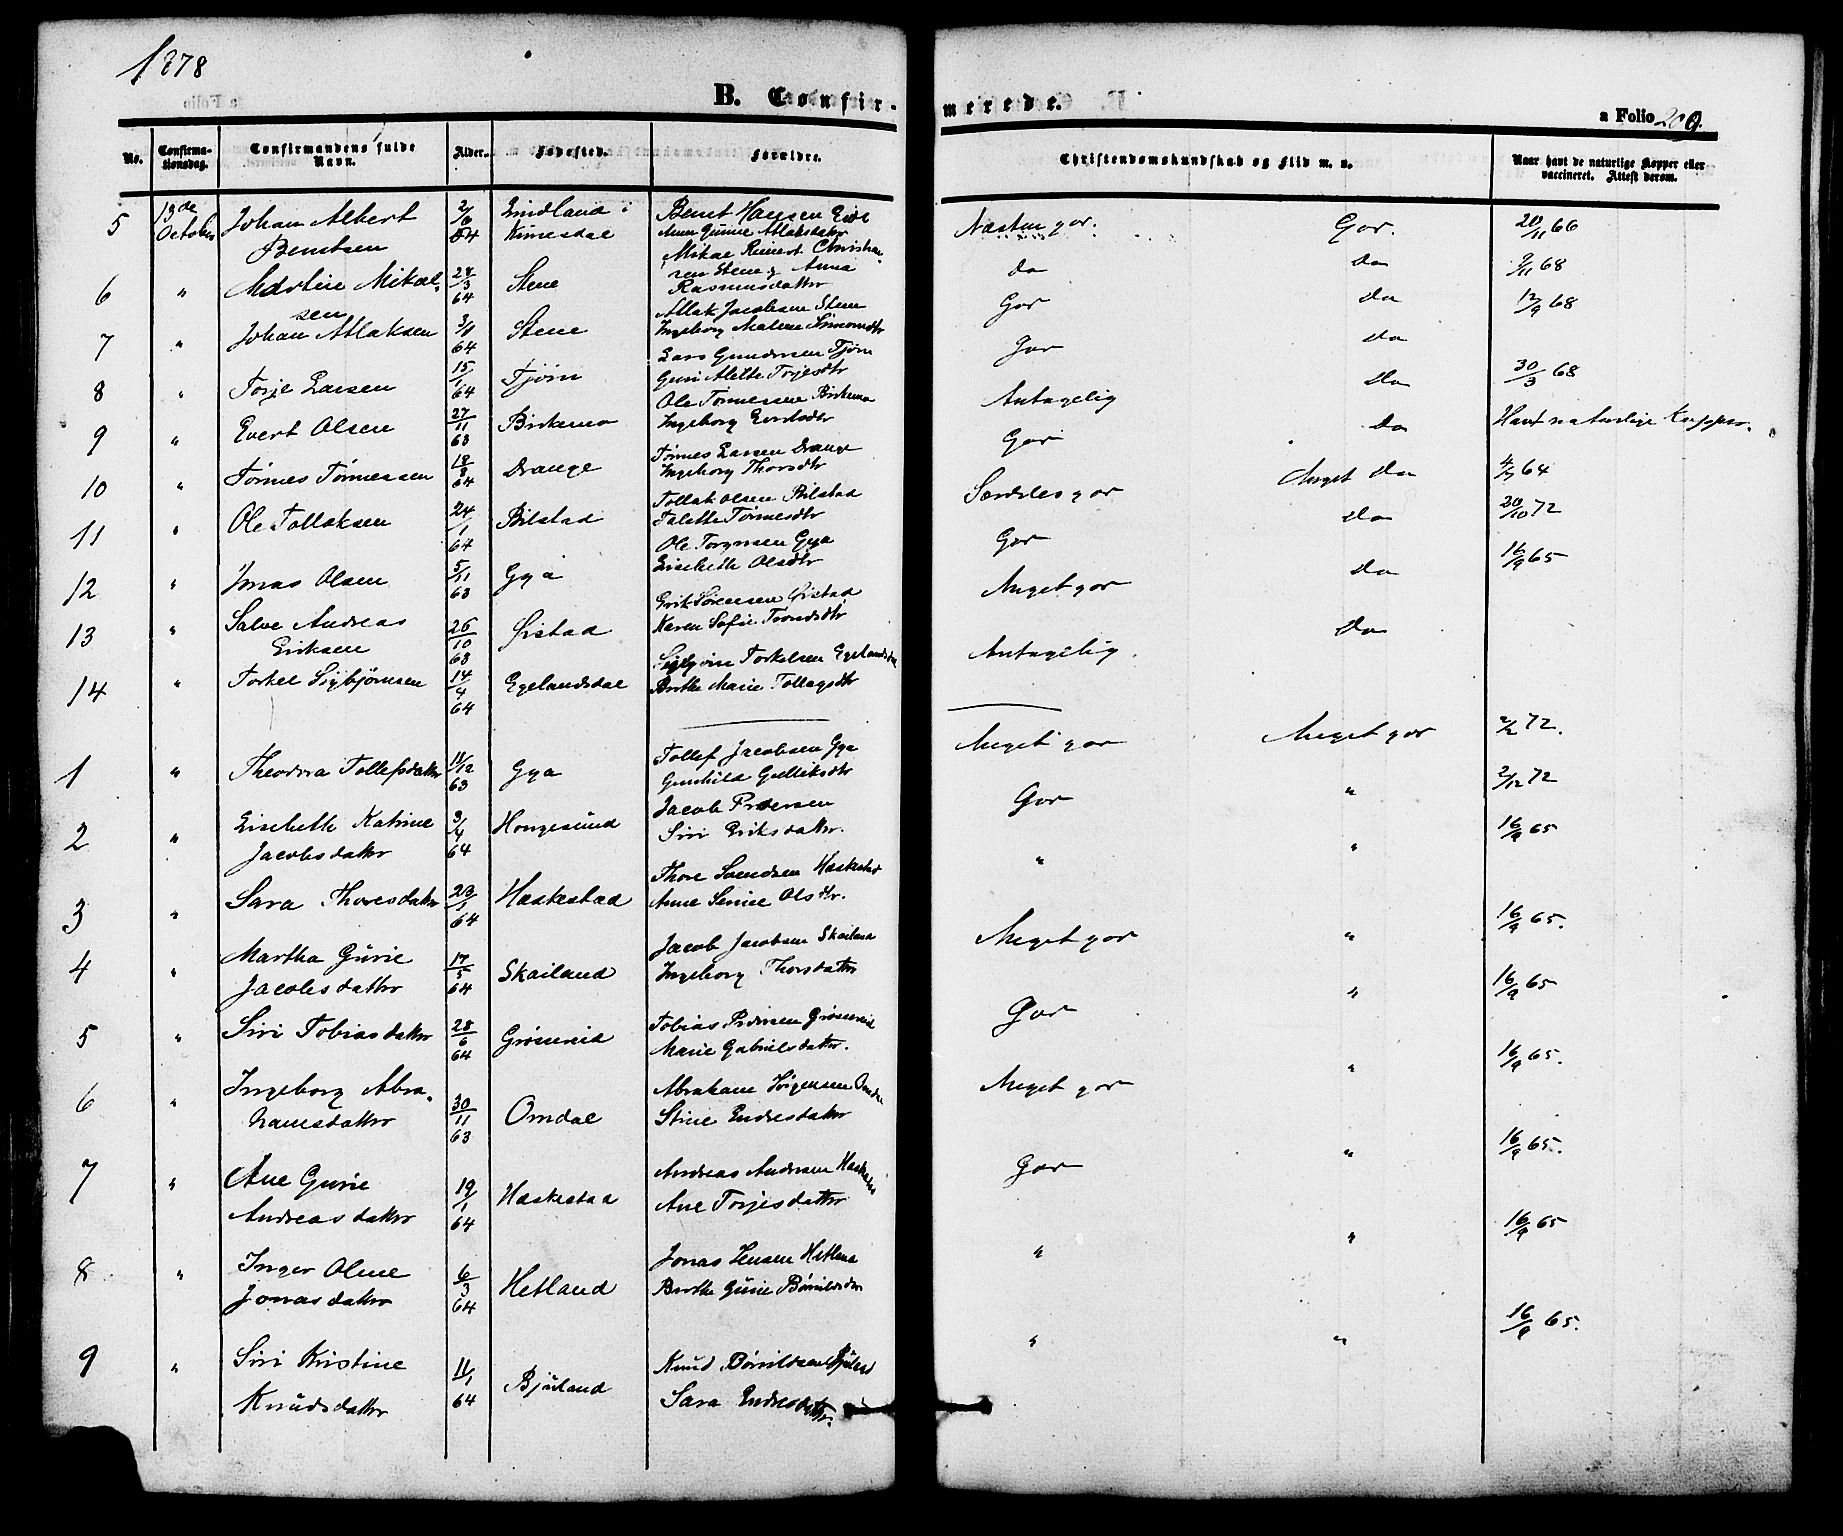 1878
B. Confirmerede.
a Folio 200.
No. Confirmationsdag. Confirmandens fulde Navn. Alder. Fødested. Forældre. Christendomskundskab og Flid m. v. Naar havt de naturlige Kopper eller vaccineret. Attest derom.
5 13de October Johan Albert Berntsen 2/6 64 Lindland Bernt Hansen Eide Ane Gurine Atlaksdatter Næsten god. God. 20/11 66
6 " Mikalsen 24/3 64 Stene Mikal Reinert Christiansen Stene Anna Rasmusdatter do do 9/11 68
7 " Johan Atlaksen 64 Stene Atlak Jacobsen Stene Ingeborg Malene Simonsdtr God do 12/9 68
8 " Torje Larsen 15/1 64 Tjørn Lars Gundersen Tjørn Guri Alette Torjesdtr God do
9 " Evert Olsen 27/11 63 Birkemo Ole Tønnessen Birkemo Ingeborg Evertsdtr Antagelig do 30/3 68
10 " Tønnes Tønnessen 18/8 64 Drange Tønnes Larsen Drange Ingeborg Thorsdtr God do Havt naturlige Kopper.
11 " Ole Tollaksen 24/1 64 Bilstad Tollak Olsen Bilstad Talette Tønnesdtr Særdeles god Meget do 64
12 " Jonas Olsen 5/11 63 Gya Ole Torgersen Gya Lisebeth Olsdtr God do 20/10 72
13 " Salve Andreas Eriksen 26/10 63 Ørstad Erik Sørensen Ørstad Karen Sofie Trondsdtr Meget god do 16/9 65
14 " Torkel Sigbjørnsen 14/4 64 Egelandsdal Sigbjørn Torkelsen Egelandsdal Berthe Marie Tollagsdtr Antagelig. do
1 " Theodora Tollefsdatter 11/12 63 Gya Tollef Jacobsen Gya Gunhild Gulliksdtr Meget god Meget god 72.
2 " Lisebeth Katrine Jacobsdatter 3/4 64 Hougesund Jacob Pedersen Siri Eriksdatter. God " 2/12 72
3 " Sara Thoresdatter 23/1 64 Haskestad Thore Svendsen Haskestad Anne Serine Olsdtr. " " 16/9 65
4 " Martha Gurie Jacobsdatter 17/5 64 Skailand Jacob Jacobsen Skailand Ingeborg Thorsdatter Meget god " 16/9 65.
5 " Siri Tobiasdatter 28/6 64 Grøsereid Tobias Pedersen Grøsereid Marie Gabrielsdatter. God " 16/9 65
6 " Ingeborg Abrahamsdatter 30/11 63 Omdal Abraham Jørgensen Omdal Stine Endresdatter Meget god " 16/9 65.
7 " Ane Gurie Andreasdatter 19/1 64 Haskestad Andreas Andersen Haskestad Ane Torjesdatter God " 16/9 65.
8 " Inger Oline Jonasdatter 6/3 64 Hetland Jonas Jensen Hetland Berthe Gurie Børrildsdtr " " 16/9 65
9 " Siri Kristine Knudsdatter 11/1 64 Bjuland Knud Børrildsen Bjuland Sara Endresdatter. " " 16/9 65.